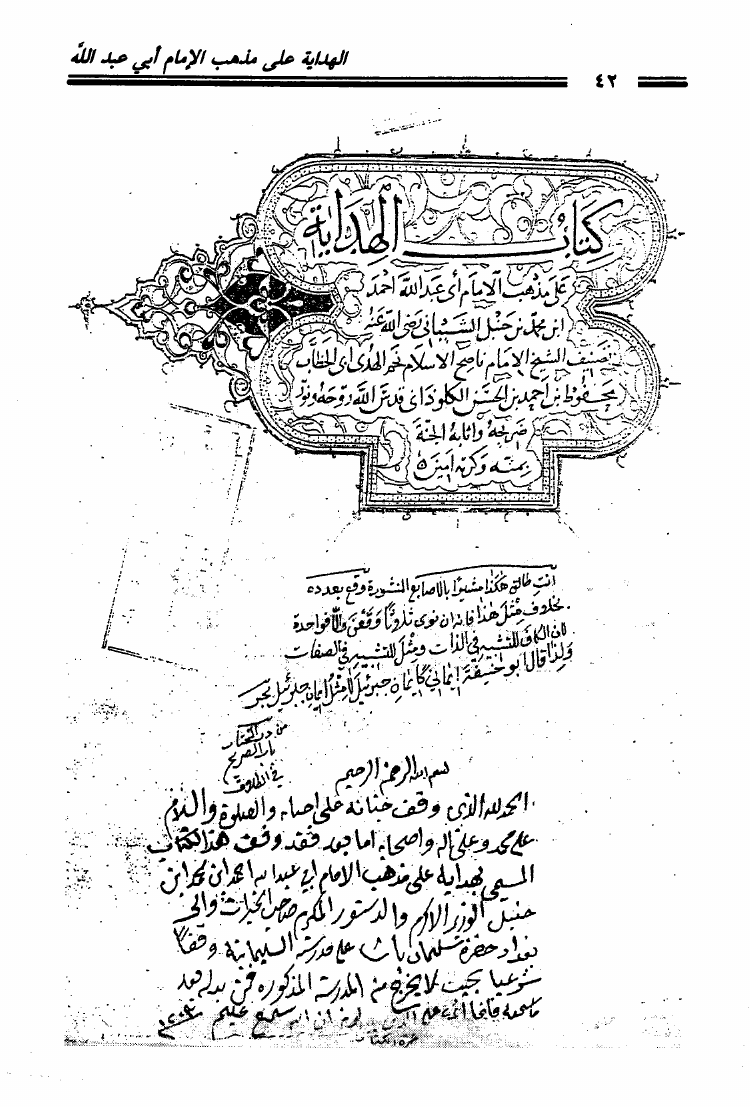 الهداية على مذهب الإمام أبي عبد اللّه
٤٢
كتاب الهداية
على مذهب الامام أبى عبد الله احمد
ابن محمد بن حنبل الشيبانى رضى الله عنه
تصنيف الشيخ الامام ناصح الاسلام نجم الهدى ابى الخطاب
محفوظ بن احمد بن الحسن الكلوذانى قدس الله روحه ونور
ضريحه واثابه الجنة
بمنه وكرمه امين
انت طالق هكذا مشيرًا بالاصابع المنشورة وقع بعدده
بخلاف مثل هذا فانه ان نوى ثلاثًا وقعن والا فواحدة
لان الكاف للتشبيه في الذات ومثل للتشبيه في الصفات
ولذا قال ابو حنيفة ايماني كايمان جبرئيل لا مثل ايمان جبرئيل بحر
من در المختار
باب الصريح
في الطلاق
بسم الله الرحمن الرحيم
الحمد لله الذي وقف على والصلوة والسلام
على محمد وعلى اله واصحابه اما بعد فقد وقف هذا الكتاب
المسمى بهداية على مذهب الامام ابي عبد الله احمد ابن محمد ابن
حنبل الوزير الاكرم والدستور المكرم صاحب الخيرات والى
بغداد حضرة سليمان باشا على مدرسة السليمانية وقفًا
شرعيا بحيث لا يخرج من المدرسة المذكوره فمن بدله بعد
ما سمعه فانما اثمه على الذين ان الله سميع عليم